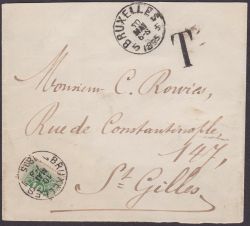 BRUXELLES
1895
T
Monsieur C. Rowies,
Rue de Constantinople,
147,
St Gilles.
BRUXELLES